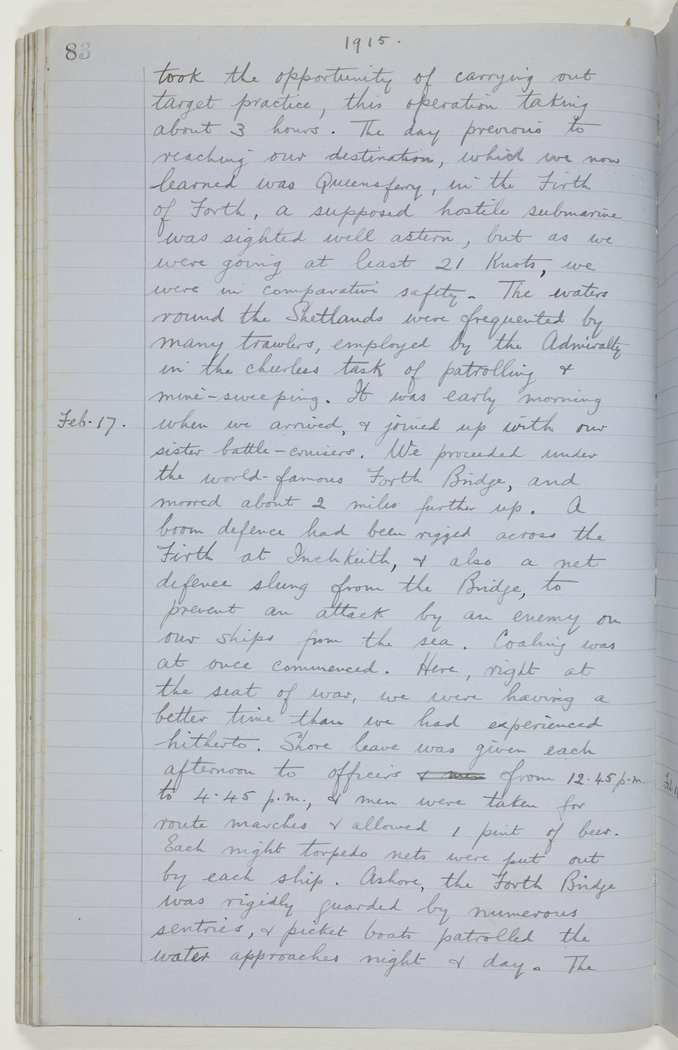 83
1915.
took the opportunity of carrying out
target practice, this operation taking
about 3 hours. The day previous to
reaching our destination, which we now
learned was Queensferry, in the Firth
of Forth, a supposed hostile submarine
was sighted well astern, but as we
were going at least 21 Knots, we
were in comparative safety. The waters
round the Shetlands were frequented by
many trawlers, employed by the Admiralty
in the cheerless task of patrolling &
mine-sweeping. It was early morning
Feb. 17. when we arrived, & joined up with our
sister battle-cruisers. We proceeded under
the world-famous Forth Bridge, and
moored about 2 miles further up. A
boom defence had been rigged across the
Firth at InchKeith, & also a net
defence slung from the Bridge, to
prevent an attack by an enemy on
our ships from the sea. Coaling was
at once commenced. Here, right at
the seat of war, we were having a
better time than we had experienced
hitherto. Shore leave was given each
afternoon to officers & men from 12.45 p.m
to 4.45 p.m., & men were taken for
route marches & allowed 1 pint of beer.
Each night torpedo nets were put out
by each ship. Ashore, the Forth Bridge
was rigidly guarded by numerous
sentries, & picket boats patrolled the
water approaches night & day. The